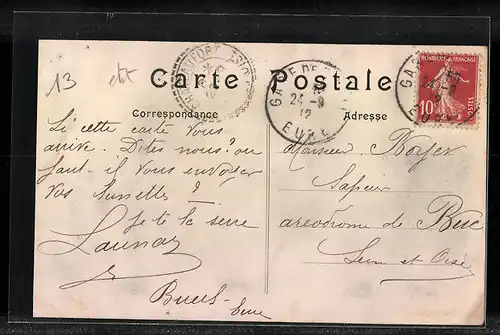 13
Carte Postale
Correspondance
Adresse
GARE DE
24 - 9
12
EURE
REPUBLIQUE FRANÇAISE
10
POSTES
Si cette carte vous
arrive. Dites nous? ou
faut-il vous envoyer
vos lunettes?
Je te la serre
Launay
Bueil
Eure
Monsieur Boyer
Sapeur
aerodrome de Buc
Seine et Oise